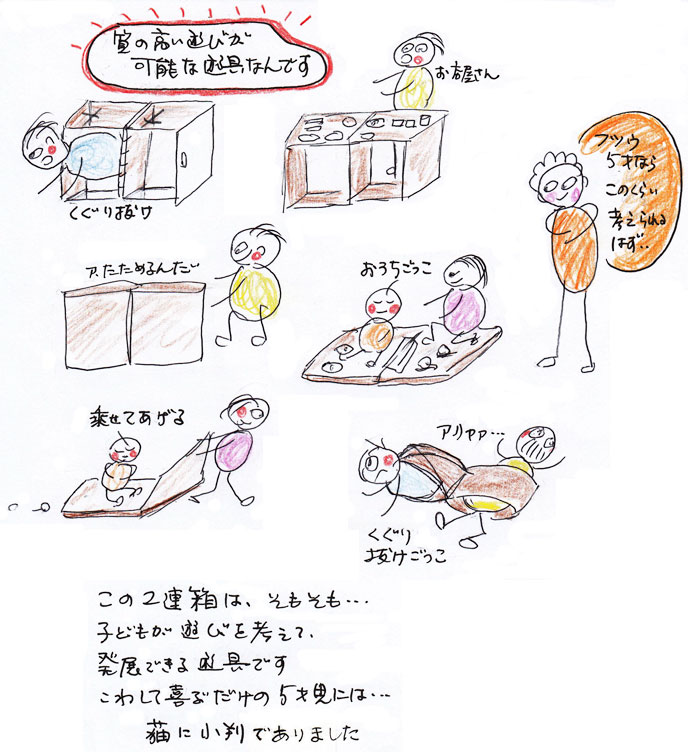 質の高い遊びが
可能な遊具なんです
お店屋さん
くぐり抜け
フツウ
5才なら
このくらい
考えられる
はず‥
ア、たためるんだい
おうちごっこ
乗せてあげる
アリャァァ…
くぐり
抜けごっこ
この2連箱は、そもそも…
子どもが遊びを考えて、
発展できる遊具です
こわして喜ぶだけの5才児には…
猫に小判でありました